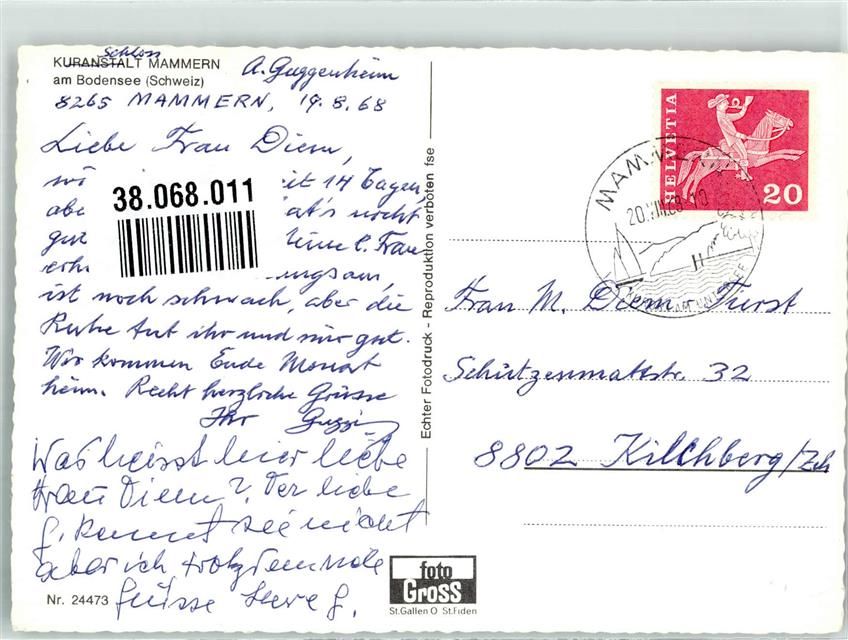 Schloss
KURANSTALT MAMMERN
am Bodensee (Schweiz)
A. Guggenheim
8265 MAMMERN, 19.8.68
Liebe Frau Diem,
wi 14 Tagen,
abe at's nicht
gu l. Frau
erh ungsam,
ist noch schwach, aber die
Ruhe tut ihr und mir gut.
Wir kommen Ende Monat
heim. Recht herzliche Grüsse
Ihr Guggi
Was heisst hier liebe
Frau Diem? Der liebe
G. kennt sie nicht
aber ich trotzdem
Grüsse Ihre G.
38.068.011
Nr. 24473
Echter Fotodruck - Reproduktion verboten fse
foto
GROSS
St.Gallen O St.Fiden
HELVETIA
20
MAMM
20.VIII.68
Frau M. Diem-Furst
Schützenmattstr. 32
8802 Kilchberg/Zch